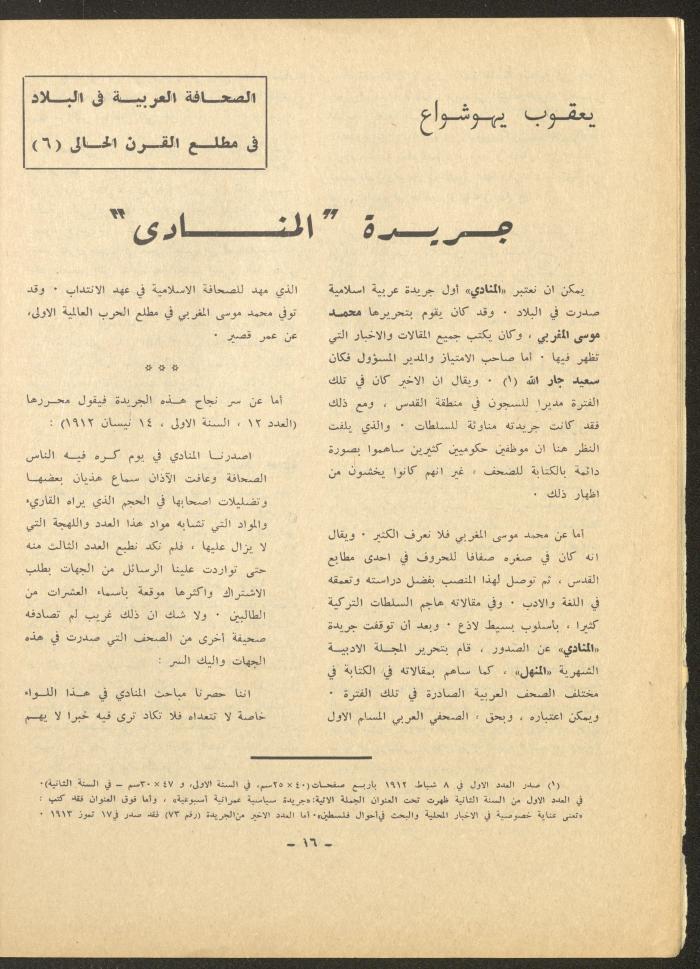 يعقوب يهوشواع
الصحافة العربية فى البلاد
فى مطلع القرن الحالى (٦)
جريدة "المنادى"
يمكن ان نعتبر «المنادي» أول جريدة عربية اسلامية
صدرت في البلاد ٠ وقد كان يقوم بتحريرها محمد
موسى المغربي ، وكان يكتب جميع المقالات والاخبار التي
تظهر فيها ٠ أما صاحب الامتياز والمدير المسؤول فكان
سعيد جار الله (١) ٠ ويقال ان الاخير كان في تلك
الفترة مديرا للسجون في منطقة القدس ، ومع ذلك
فقد كانت جريدته مناوئة للسلطات ٠ والذي يلفت
النظر هنا ان موظفين حكوميين كثيرين ساهموا بصورة
دائمة بالكتابة للصحف ، غير انهم كانوا يخشون من
اظهار ذلك ٠
أما عن محمد موسى المغربي فلا نعرف الكثير ٠ ويقال
انه كان في صغره صفافا للحروف في احدى مطابع
القدس ، ثم توصل لهذا المنصب بفضل دراسته وتعمقه
في اللغة والادب ٠ وفي مقالاته هاجم السلطات التركية
كثيرا ، باسلوب بسيط لاذع ٠ وبعد أن توقفت جريدة
«المنادي» عن الصدور ، قام بتحرير المجلة الادبية
الشهرية «المنهل» ، كما ساهم بمقالاته في الكتابة في
مختلف الصحف العربية الصادرة في تلك الفترة ٠
ويمكن اعتباره ، وبحق ، الصحفي العربي المسلم الاول
الذي مهد للصحافة الاسلامية في عهد الانتداب ٠ وقد
توفي محمد موسى المغربي في مطلع الحرب العالمية الاولى،
عن عمر قصير ٠
* * *
أما عن سر نجاح هذه الجريدة فيقول محررها
(العدد ١٢ ، السنة الاولى ، ١٤ نيسان ١٩١٢) :
اصدرنا المنادي في يوم كره فيه الناس
الصحافة وعافت الآذان سماع هذيان بعضها
وتضليلات اصحابها في الحجم الذي يراه القاريء
والمواد التي تشابه مواد هذا العدد واللهجة التي
لا يزال عليها ، فلم نكد نطبع العدد الثالث منه
حتى تواردت علينا الرسائل من الجهات بطلب
الاشتراك واكثرها موقعة بأسماء العشرات من
الطالبين ٠ ولا شك ان ذلك غريب لم تصادفه
صحيفة أخرى من الصحف التي صدرت في هذه
الجهات واليك السر :
اننا حصرنا مباحث المنادي في هذا اللواء
خاصة لا تتعداه فلا تكاد ترى فيه خبرا لا يهم
(١) صدر العدد الاول في ٨ شباط ١٩١٢ باربع صفحات (٤٠ × ٢٥سم، في السنة الاولى، و ٤٧ × ٣٠سم – في السنة الثانية)٠
في العدد الاول من السنة الثانية ظهرت تحت العنوان الجملة الاتية: «جريدة سياسية عمرانية أسبوعية» ، وأما فوق العنوان فقد كتب :
«تعنى عناية خصوصية في الاخبار المحلية والبحث في أحوال فلسطين»٠ أما العدد الاخير من الجريدة (رقم ٧٣) فقد صدر في ١٧ تموز ١٩١٣ ٠
– ١٦ –